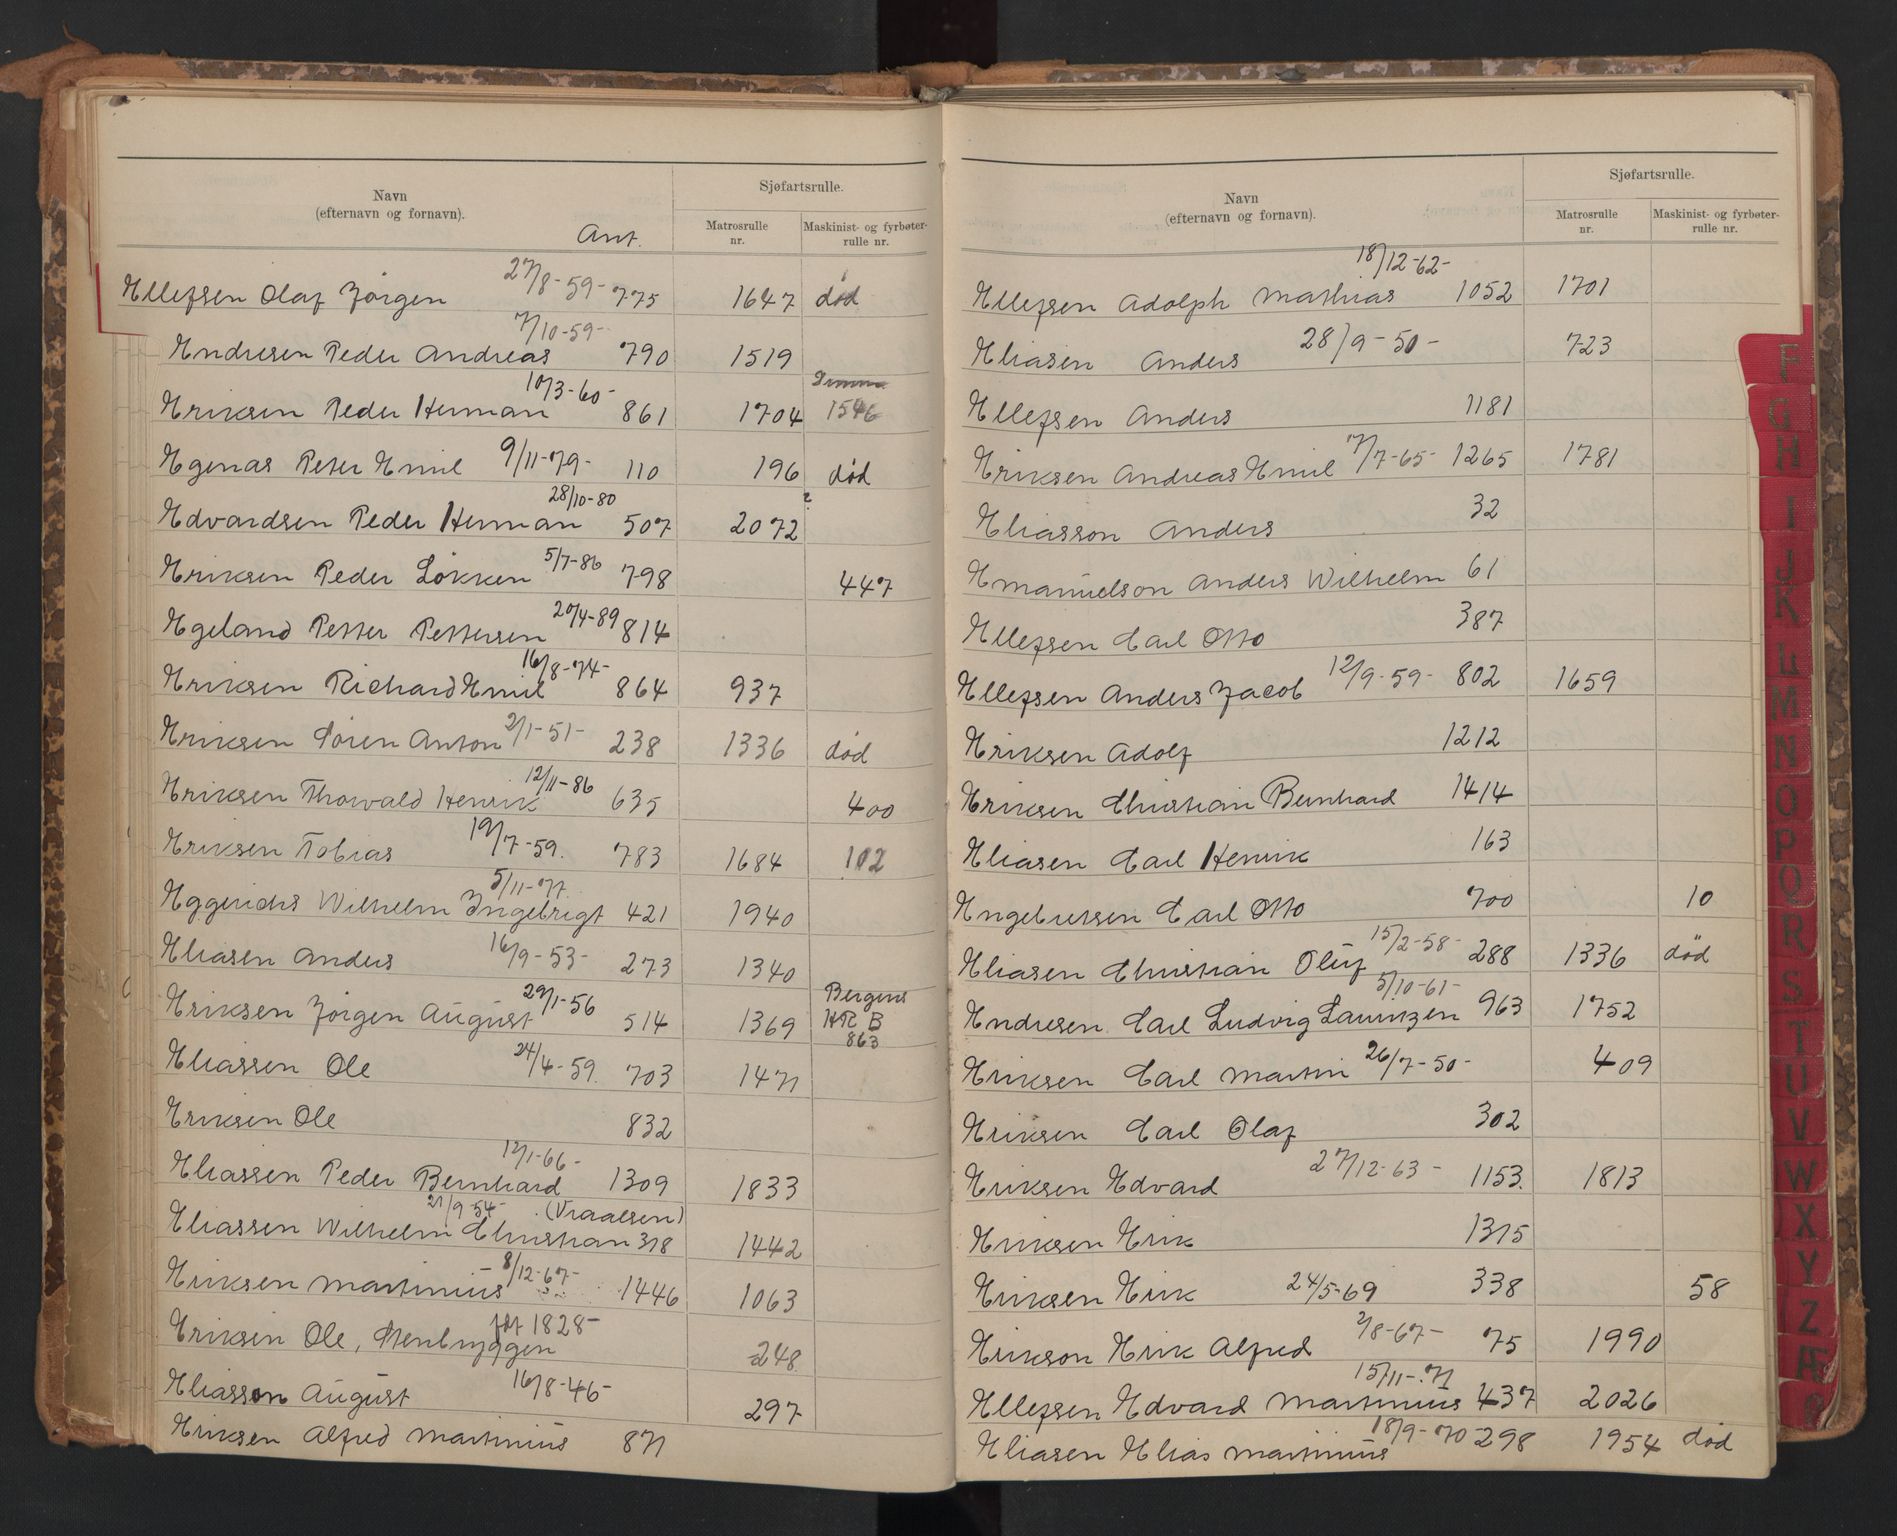 Navn
(efternavn og fornavn).
Ant.
Sjøfartsrulle.
Matrosrulle nr.
Maskinist- og fyrbøter-rulle nr.
Ellefsen Olaf Jørgen 27/8-59- 775 1647 død
Endresen Peder Andreas 7/10-59- 790 1519
Eriksen Peder Herman 10/3-60- 861 1704 1546
Egenas Peter Emil 9/11-79- 110 196 død
Edvardsen Peder Herman 28/10-80 507 2072 ?
Eriksen Peder Løkken 5/7-86 798 447
Egeland Petter Pettersen 27/4-89 814
Eriksen Richard Emil 16/8-74- 864 937
Eriksen Søren Anton 2/1-51- 238 1336 død
Eriksen Thorvald Henrik 12/11-86 635 400
Eriksen Tobias 19/7-59. 783 1684 102
Eggerichs Wilhelm Ingebrigt 5/11-77. 421 1940
Eliasen Anders 16/9-53- 273 1340
Eriksen Jørgen August 29/1-56 514 1369 Bergens HR B 863
Eliassen Ole 24/4-59. 703 1471
Eriksen Ole 832
Eliassen Peder Bernhard 12/1-66- 1309 1833
Eliassen Wilhelm Christian 21/9-54- (Vraalsen) 318 1442
Eriksen Martinius 8/12-67- 1446 1063
Eriksen Ole, Stenbryggen født 1828- 248
Eliasson August 16/8-46- 297
Eriksen Alfred Martinius 871
Navn
(efternavn og fornavn).
Sjøfartsrulle.
Matrosrulle nr.
Maskinist- og fyrbøter-rulle nr.
Ellefsen Adolph Mathias 18/12-62- 1052 1701
Eliasen Anders 28/9-50- 723
Ellefsen Anders 1181
Eriksen Andreas Emil 17/7-65- 1265 1781
Eliasson Anders 32
Emanuelson Anders Wilhelm 61
Ellefsen Carl Otto 387
Ellefsen Anders Jacob 12/9-59- 802 1659
Eriksen Adolf 1212
Eriksen Christian Bernhard 1414
Eliasen Carl Henrik 163
Engebretsen Carl Otto 700 10
Eliasen Christian Oluf 15/2-58- 288 1336 død
Endresen Carl Ludvig Lauritzen 5/10-61- 963 1752
Eriksen Carl Martin 26/7-50- 409
Eriksen Carl Olaf 302
Eriksen Edvard 27/12-63- 1153. 1813
Eriksen Erik 1315
Eriksen Erik 24/5-69 338 58
Erikson Erik Alfred 2/8-67- 75 1990
Ellefsen Edvard Martinius 15/11-71 437 2026
Eliasen Elias Martinius 18/9-70 298 1954 død
E
G
H
I
J
K
L
M
N
O
P
Q
R
S
T
U
V
W
X
Y
Z
Æ
Ø